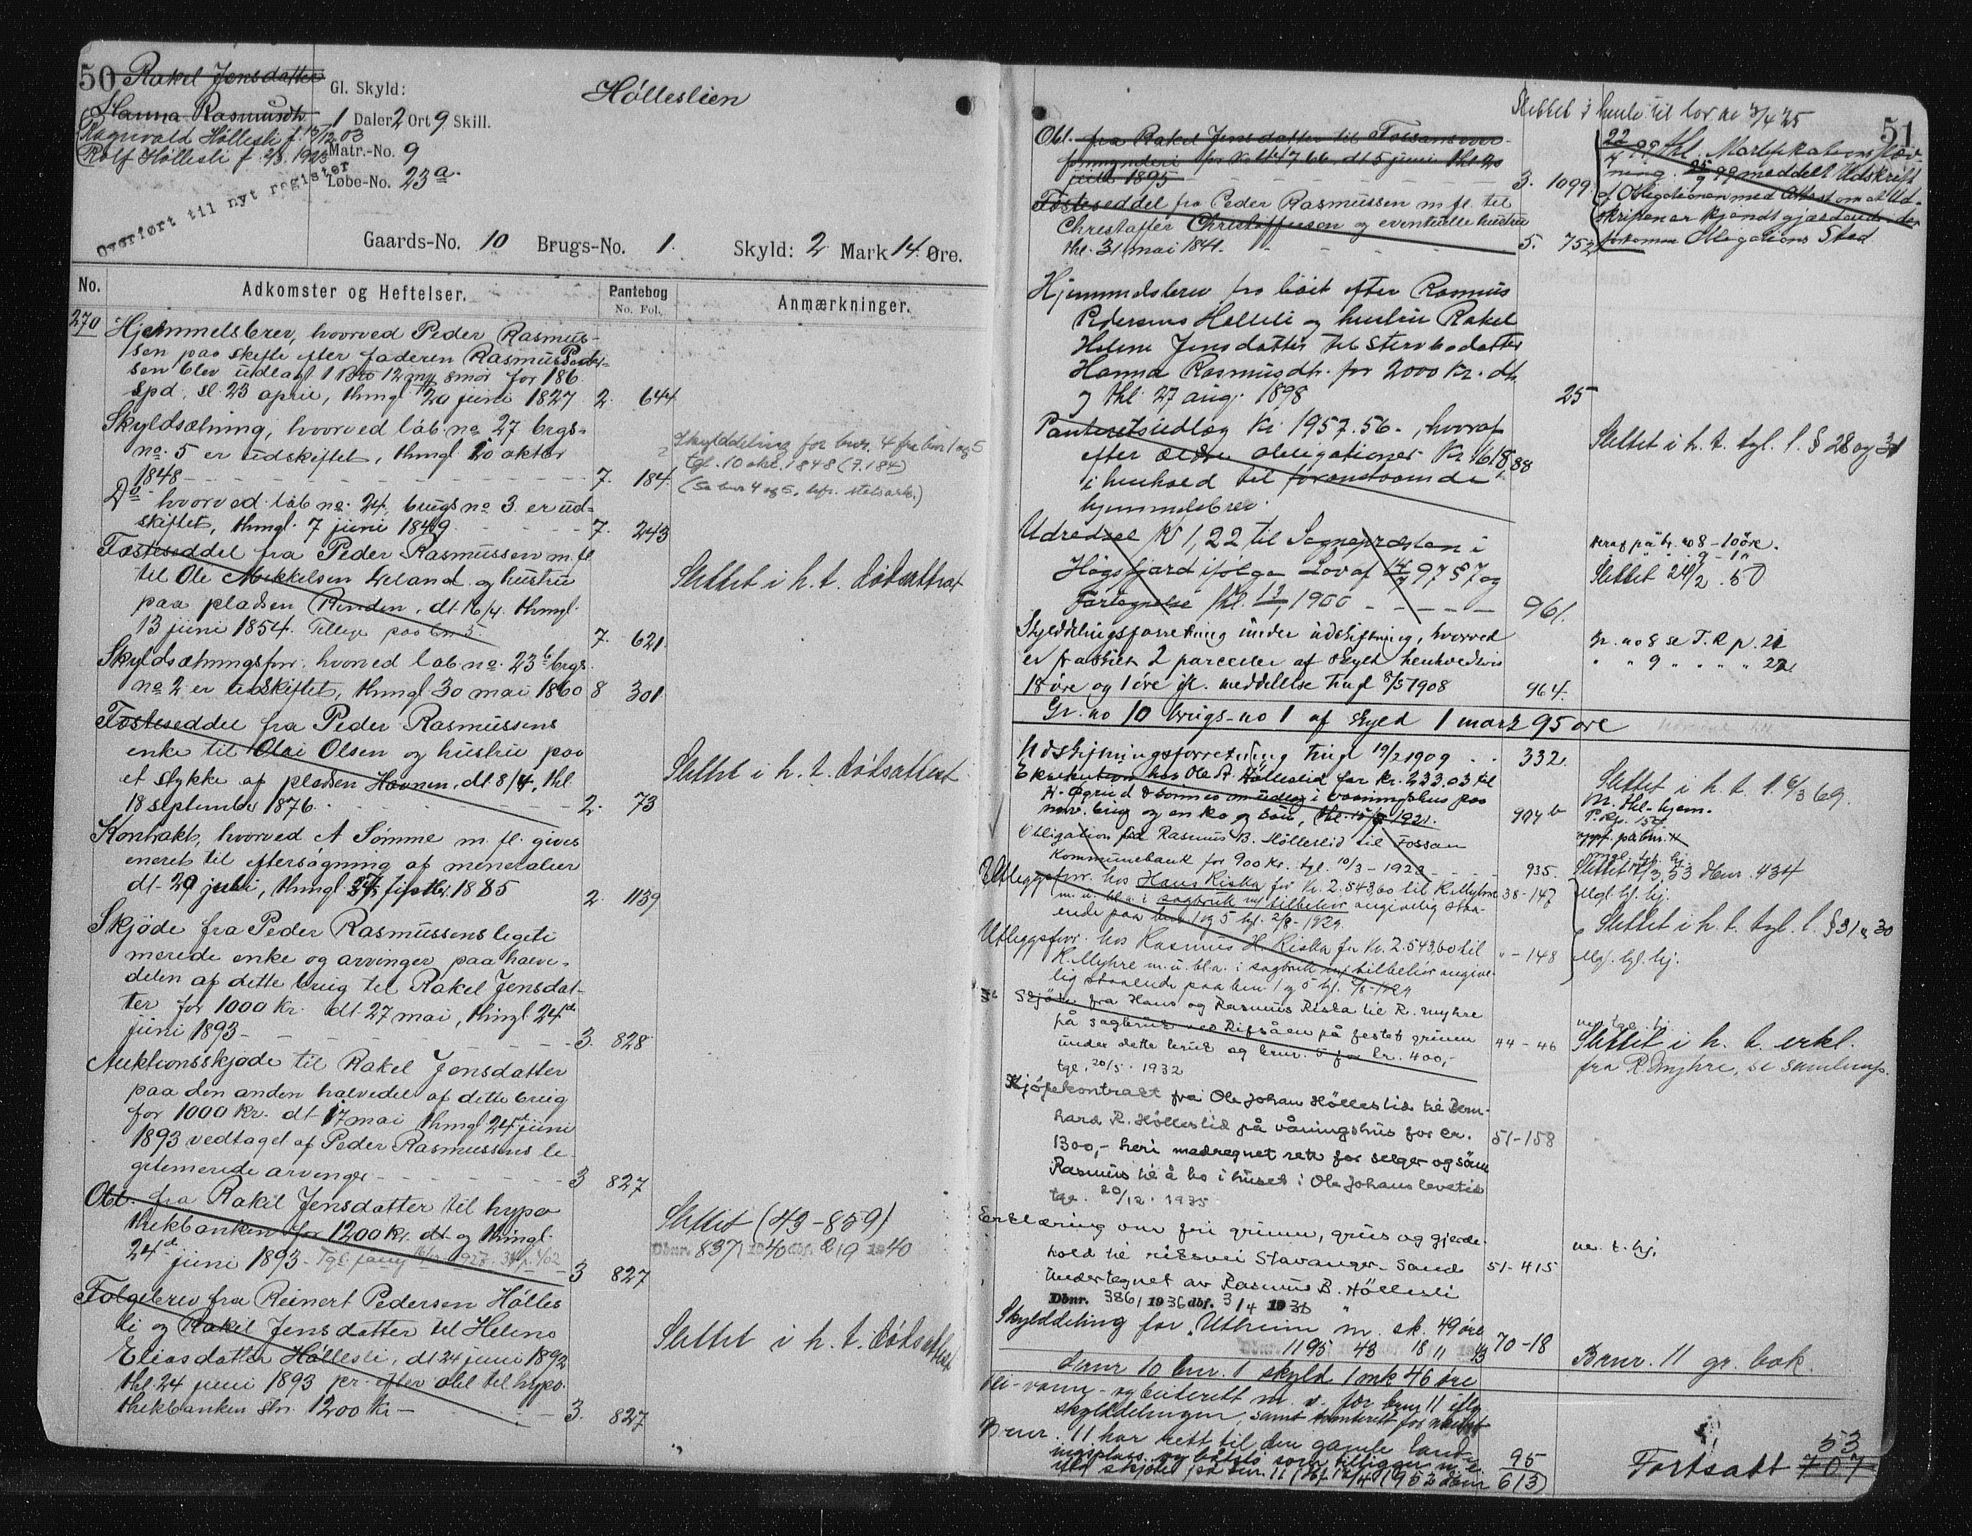 50 Rakel Jensdatter
Hanna Rasmusdtr.
Ragnvald Hølleslí f. 13/12 03
Rolf Hølleslí f. 2/8 1923
Overført til nyt register
Gl. Skyld:
1 Daler 2 Ort 9 Skill.
Matr.-No. 9
Løbe-No. 23a.
Høllesliën
Gaards-No. 10 Brugs-No. 1. Skyld: 2 Mark 14 Øre.
No. Adkomster og Heftelser. Pantebog No. Fol. Anmærkninger.
270 Hjemmelsbrev, hvorved Peder Rasmus-
sen paa skifte efter faderen Rasmus Peder-
sen blev udlagt 1 12 8 mør for 186
spd. sl. 23 april, thingl 20 juni 1827 2. 644
Skyldsætning, hvorved løb no 27 brgs-
no. 5 er udskiftet, thingl 10 oktbr
1848 - 7. 184
Skylddeling for bnr. 4 fra bnr 1 og 5
tgl. 10 okt. 1848 (7.184)
(Se bnr 4 og 5, kfr. statsark.)
Do hvorved løb no. 24, brugs no 3 er ud-
skiftet, thingl. 7 juni 1849 7. 243
Fæsteseddel fra Peder Rasmussen m. fl
til Ole Mikkelsen Leland og hustru
paa pladsen Rinden, dt 16/4. thingl.
13 juni 1854. Tillige paa bn 5 7. 621
Slettet i h. t. dødsattest
Skyldsætningsforr. hvorved løb no. 23b brgs.
no 2 er udskiftet, thingl 30 mai 1860 8 301
Fæsteseddel fra Peder Rasmussens
enke til Olai Olsen og hustru paa
et stykke af pladsen Havnen, dt 8/4, thl.
18 september 1876 - 2. 73
Slettet i h. t. dødsattest
Kontrakt, hvorved A Sømme m. fl. gives
eneret til eftersøgning af meneralier
dt 29 juli, thingl 1885 2. 1139
Skjøde fra Peder Rasmussens legeti
merede enke og arvinger paa halve-
delen af dette brug til Rakel Jensdat-
ter for 1000 Kr. dt 27 mai, thingl 24de
juni 1893 - 3. 828
Auktionsskjøde til Rakel Jensdatter
paa den anden halvedel af dette brug
for 1000 Kr. dt 17 mai thingl 24de juni
1893 vedtaget af Peder Rasmussens le-
gitemerede arvinger - 3 827
Obl. fra Rakel Jensdatter til hypo
thekbanken for 1200 Kr. dt og thingl.
24de juni 1893 - 3 827
Slettet (43-859)
Dbnr. 837/1940 dbf. 2/9 1940
Følgebrev fra Reinert Pedersen Hølles
li og Rakel Jensdatter til Helene
Eliasdatter Høllesli, dt 24 juni 1892
thl 24 juni 1893 pr. efter obl til hypo.
thekbanken str. 1200 Kr - 3. 827
Slettet i h. t. dødsattest
51
Slettet i henhold til lov av 3/4 25
Obl. fra Rakel Jensdatter til Fossans over
formynderi for Kr 1147 66 dt 5 juni thl 20
juli 1895 - 3. 1099
22/4 99 thl. Mortifikationsstæv-
ning. 25/9 99 meddelt Udskrift
af Obligationen med Attest om at Ud-
skriften er kjendt gjældende i den
forkomne Obligations Sted
Fæsteseddel fra Peder Rasmussen m. fl. til
Christaffer Christoffersen og eventuelle hustru
thl. 31 mai 1844. 5. 752
Hjemmelsbrev fra boet efter Rasmus
Pedersens Hølleslí og hustru Rakel
Helene Jensdatter til Stervbodatter
Hanna Rasmusdtr. for 2000 Kr. dt.
og thl. 27 aug. 1898 25
Panteretsudlæg Kr 1957.56., hvoraf
efter ældre obligationer Kr 1618 88
i henhold til foranstaaende
hjemmelsbrev
Slettet i h. t. tgl. l. § 28 og 31
Udredsel Kr 1,22 til Sognepræsten i
Høgsfjord ifølge Lov af 14/7 97 § 7 og
Fortegnelse thl. 1900 - 961.
Heraf på br. no 8 - 10 øre.
" " " 9 - 1 "
Slettet 24/2.50
Skylddelingsforretning under udskiftning, hvorved
er fraskilt 2 parceller af skyld henholdsvis
18 øre og 1 øre ifl. meddelelse Tingl 8/5 1908 964.
br. no 8 se T. R p. 21
" " 9 " " " " 22
Gr. no 10 brugs-no 1 af skyld 1 mark 95 øre
Udskiftningsforretning Tingl 19/2 1909 - 332.
Eksekution hos Ole A. Hølleslid for kr. 233.03 til
Øgreid & Sønner m udlæg i vaaningshus paa
nevnte brug og en ko og baat, thl. 1921. 904b
Slettet i h. t. 1. 6/3 69.
Obligation fra Rasmus B. Hølleslid til Fossan
Kommunebank for 900 kr. tgl. 10/3 - 1923 - 935.
Slettet 17/3, 53 dbnr. 434
Utleggsforr. hos Hans Riska for Kr. 2.543,60 til R. Myhre
m. u. bl.a. i sagbruk m/ tilbehør angivelig staa-
ende paa bnr 1 og 5 tgl. 2/8 - 1929. 38-147
Mgl. tgl. hj.
Utleggsforr. hos Rasmus H. Riska for Kr. 2.543,60 til
R. Myhre m. u. bl.a. i sagbruk m/ tilbehør angive-
lig staaende paa bnr. 1 og 5 tgl. 1929 " - 148
Slettet i h. t. tgl. l. § 31 og 30
Mgl. tgl. hj.
Skjøte fra Hans og Rasmus Riska til R. Myhre
på sagbruk ved Rifsåen på festet grunn
under dette bruk og bnr. 5 for kr. 400,-
tgl. 20/5. 1932 44-46
Slettet i h. t. erkl.
fra R. Myhre, se samlemp.
Kjøpekontrakt fra Ole Johan Hølleslid til Bern-
hard R. Hølleslid på våningshus for kr.
1300,- heri medregnet rett for selger og sønn
Rasmus til å bo i huset i Ole Johans levetid
tgl. 20/12. 1935 51-158
Erklæring om fri grunn, grus og gjerde-
hold til riksvei Stavanger - Sand
Undertegnet av Rasmus B. Høllesli
Dbnr. 386/1936 dbf. 3/4 1936 51-415
m. t. hj.
Skylddeling for "Utheim" m. sk. 49 øre
Dbnr. 1195 43 18/11 43 70-18
Bnr. 11 gr. bok.
Gnr 10 bnr. 1 skyld 1 mk 46 øre
Vei-vann- og beiterett m. v. for bnr 11 iflg
skylddelingen, samt
Bnr. 11 har rett til den gamle land-
ingsplass og båtstø som tilligger
iflg skjøte på bnr. 11 1952 dbnr 95
613)
Fortsatt 707 53